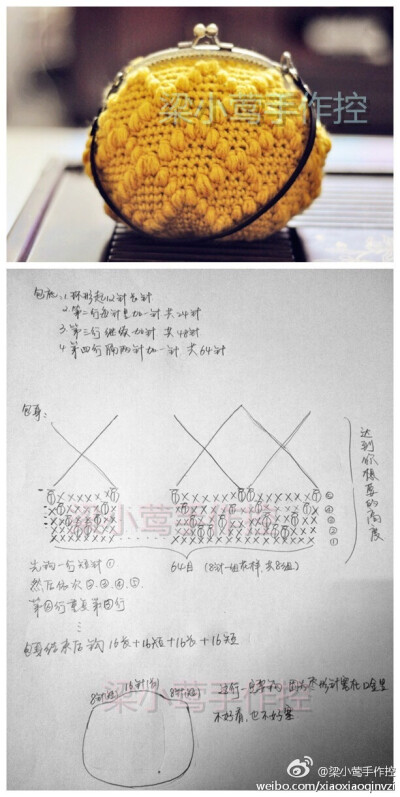 梁小莺手作控
包底:1.环形起12针长针
2.第二行每针里加一针 共24针
3.第三行继续加针 共48针
4.第四行隔两针加一针 共64针
包身:
达到你想要的高度
⑤
④
③
②
①
梁小莺手作控
64目 (8针一组花样,共8组)
先钩一行短针①
然后依次②③④⑤
第⑥行重复第②行
...
包身结束后钩 16长+16短+16长+16短
梁小莺手作控
8针(短) 16针(长) 8针(短)
不好看,也不好塞
@梁小莺手作控
weibo.com/xiaoxiaoqinvzi